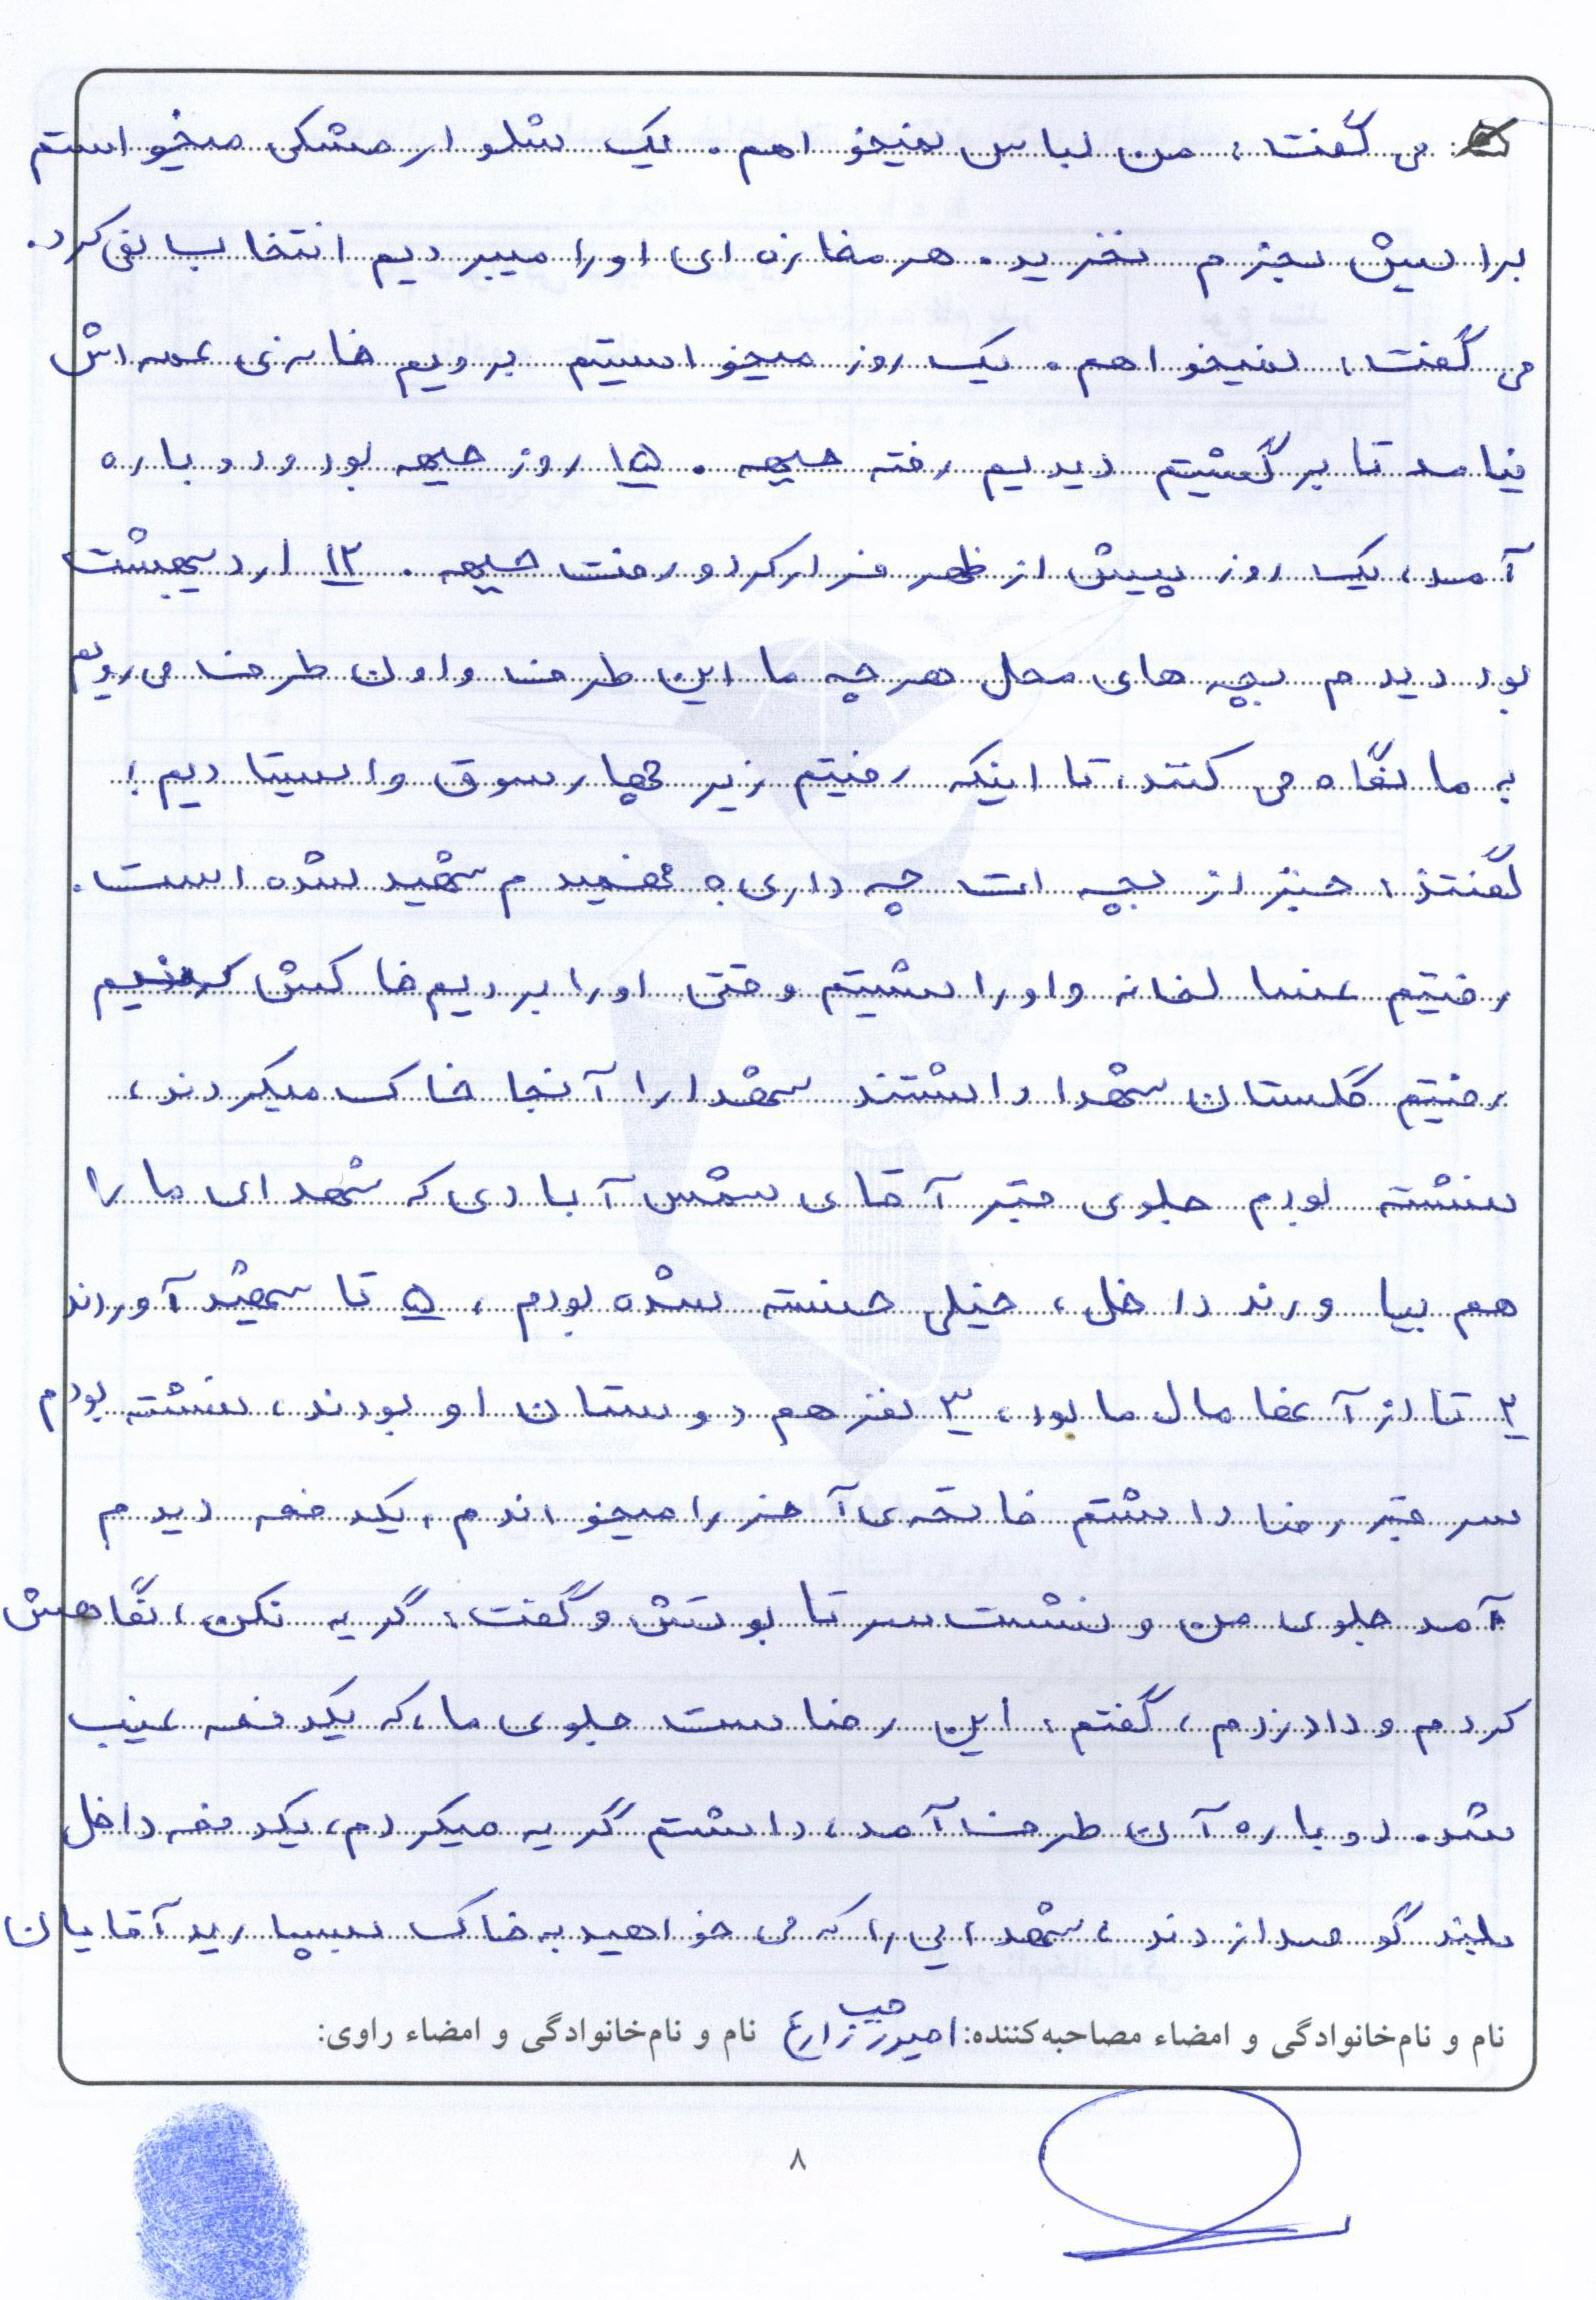 می گفت: من لباس نمیخواهم. یک شلوار مشکی میخواستم
برایش بخرم نخرید. هر مغازه ای او را میبردیم انتخاب نمی کرد.
می گفت: نمیخواهم. یک روز میخواستیم برویم خانه ی عمه اش
نیامد تا برگشتیم دیدیم رفته جبهه. ۱۵ روز جبهه بود و دوباره
آمد، یک روز پیش از ظهر فرار کرد و رفت جبهه. ۱۲ اردیبهشت
بود دیدم بچه های محل هر چه ما این طرف و اون طرف می رویم
به ما نگاه می کنند، تا اینکه رفتیم زیر چهارسوق و ایستادیم؛
گفتند: خبر از بچه ات چه داری؟ فهمیدم شهید شده است.
رفتیم غسالخانه و او را شستیم وقتی او را بردیم خاکش کنیم
رفتیم گلستان شهدا داشتند شهدا را آنجا خاک میکردند،
نشسته بودم جلوی قبر آقای شمس آبادی که شهدای ما را
هم بیاورند داخل، خیلی خسته شده بودم، ۵ تا شهید آوردند
۲ تا از آنها مال ما بود، ۳ نفر هم دوستان او بودند، نشسته بودم
سر قبر رضا داشتم فاتحه ی آخر را میخواندم، یکدفعه دیدم
آمد جلوی من و نشست سر تابوتش و گفت: گریه نکن، نگاهش
کردم و داد زدم، گفتم: این رضاست جلوی ما، که یکدفعه غیب
شد. دوباره آن طرف آمد، داشتم گریه میکردم، یکدفعه داخل
بلندگو صدا زدند: شهدایی را که می خواهید به خاک بسپارید آقایان
نام و نام‌خانوادگی و امضاء مصاحبه‌کننده: زارع نام و نام‌خانوادگی و امضاء راوی:
۸